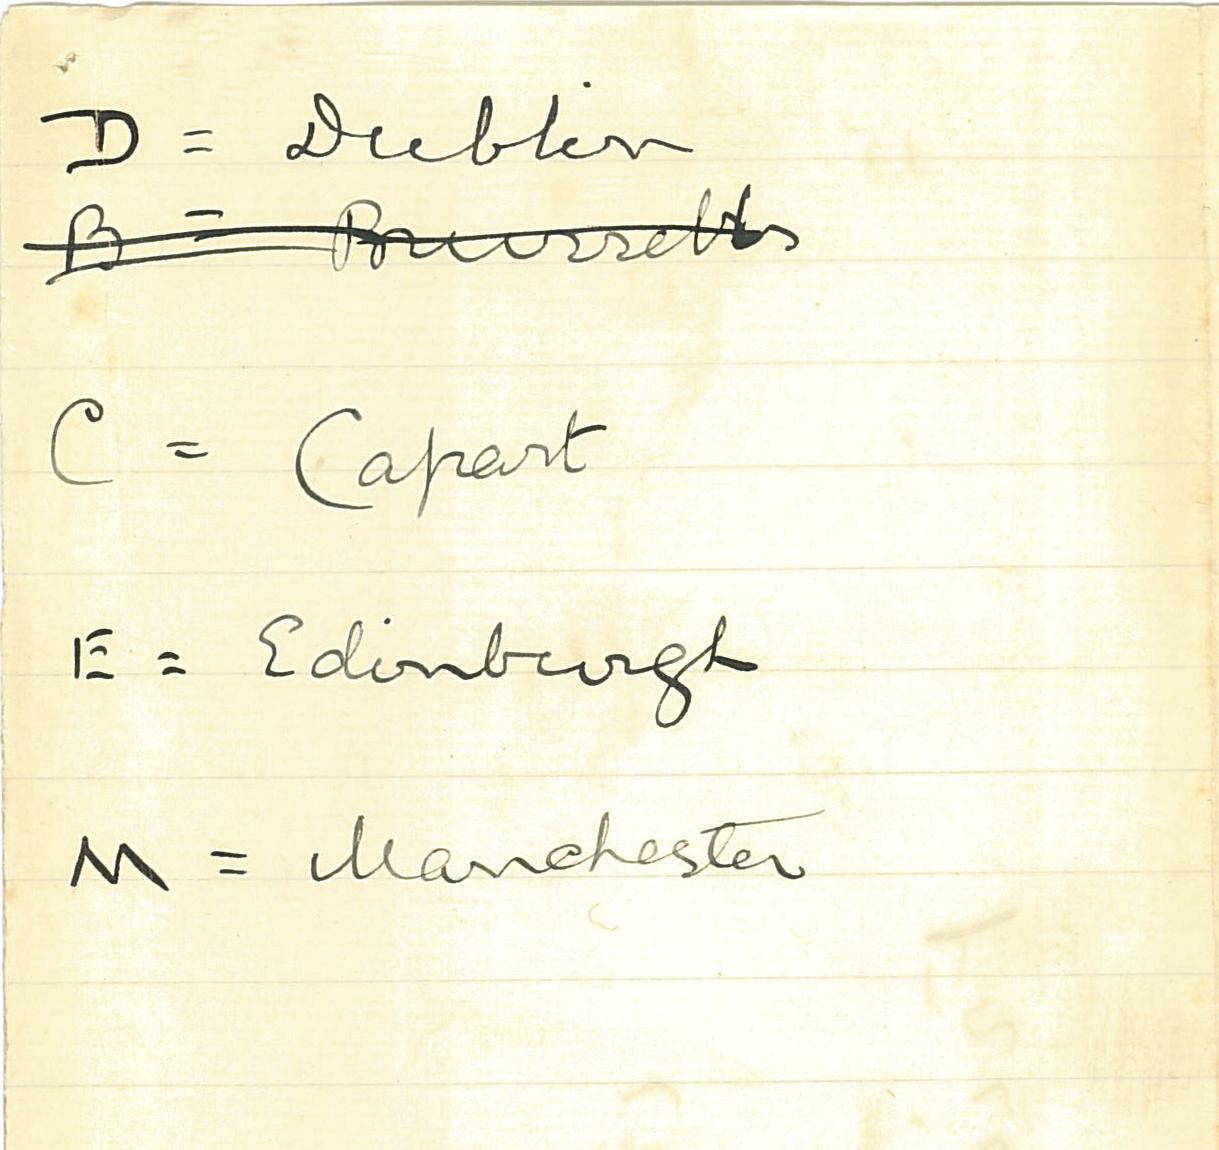 D = Dublin
B = Brussels
C = Capart
E = Edinburgh
M = Manchester